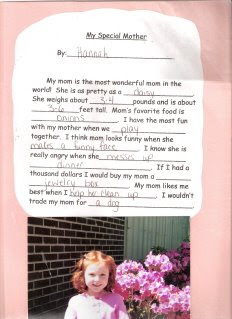 My Special Mother
By: Hannah
My mom is the most wonderful mom in the
world! She is as pretty as a daisy.
She weighs about 34 pounds and is about
3-6 feet tall. Mom's favorite food is
onions. I have the most fun
with my mother when we play
together. I think mom looks funny when she
makes a funny face. I know she is
really angry when she messes up
dinner. If I had a
thousand dollars I would buy my mom a
jewelry box. My mom likes me
best when I help her clean up. I wouldn't
trade my mom for a dog